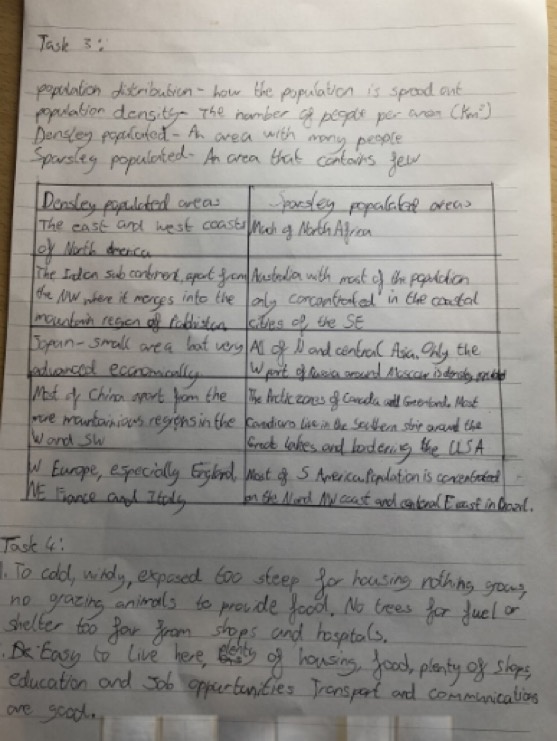 Task 3:
population distribution - how the population is spread out
population density - The number of people per area (Km²)
Densley populated - An area with many people
Sparsley populated - An area that contains few
Densley populated areas
Sparsley populated areas
The east and west coasts
of North America
Much of North Africa
The Indian sub continent, apart from
the NW where it merges into the
mountain region of Pakistan
Australia with most of the population
only concentrated in the coastal
cities of the SE
Japan - small area but very
advanced economically
All of N and central Asia. Only the
W part of Russia around Moscow is densley
Most of China apart from the
more mountainious regions in the
W and SW
The Arctic zones of Canada and Greenland. Most
Canadians live in the Southern strip around the
Great lakes and bordering the USA
W Europe, especially England,
NE France and Italy
Most of S America. Population is concentrated
on the N and NW coast and central E coast in Brazil.
Task 4:
1. To cold, windy, exposed too steep for housing nothing grows,
no grazing animals to provide food. No trees for fuel or
shelter too far from shops and hospitals.
Easy to live here, plenty of housing, food, plenty of shops,
education and Job oppurtunities Transport and communications
are good.